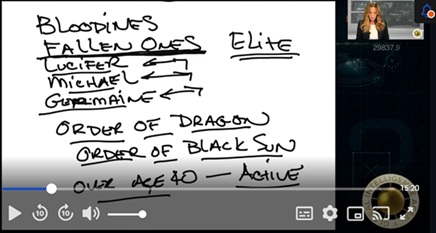 BLOODLINES
FALLEN ONES
ELITE
LUCIFER
MICHAEL
GERMAINE
ORDER OF DRAGON
ORDER OF BLACK SUN
OVER AGE 40 — ACTIVE
29837.9
15:20
10
10